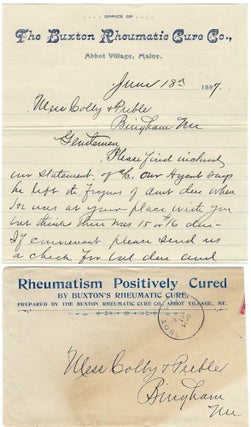 OFFICE OF
The Buxton Rheumatic Cure Co.,
Abbot Village, Maine.
June 18th 1897.
Mess Colby & Preble
Bingham Me
Gentlemen
Please find inclosed
our statement, of %c. our Agent says
he left the figures of amt due when
he was at your place with you
but think there was 15 or 16 due—
If convenient please send us
a check for bal due and
Rheumatism Positively Cured
BY BUXTON'S RHEUMATIC CURE.
PREPARED BY THE BUXTON RHEUMATIC CURE CO., ABBOT VILLAGE, ME.
Mess Colby & Preble
Bingham
Me